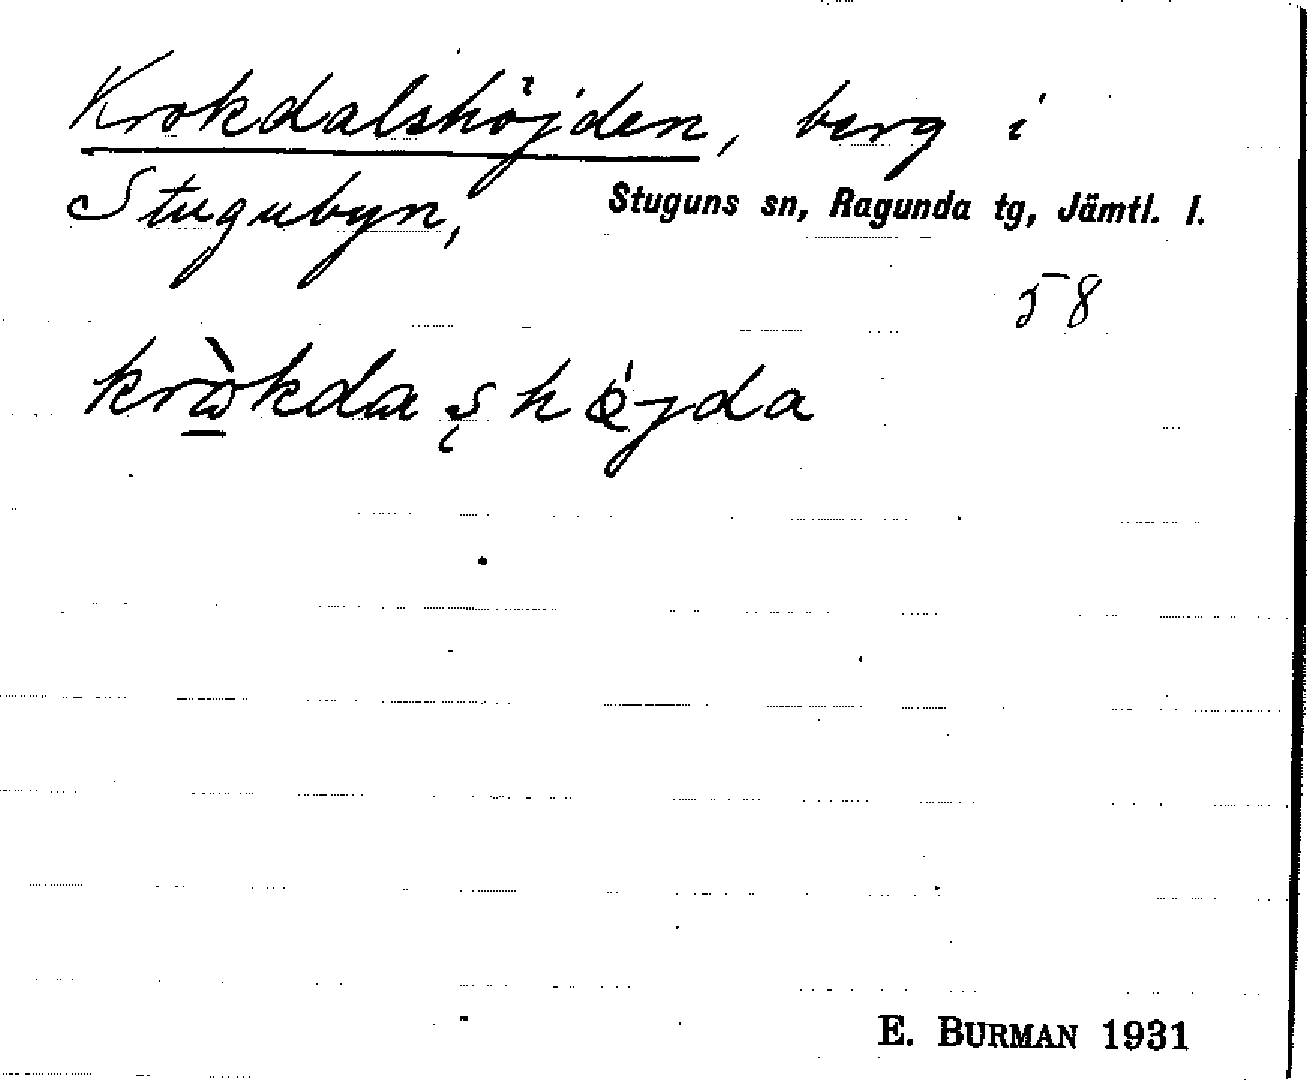 Krokdalshöjden, berg i
Stugubyn, Stuguns sn, Ragunda tg, Jämtl. l.
58
krὼkdaʂhǿjda
E. BURMAN 1931